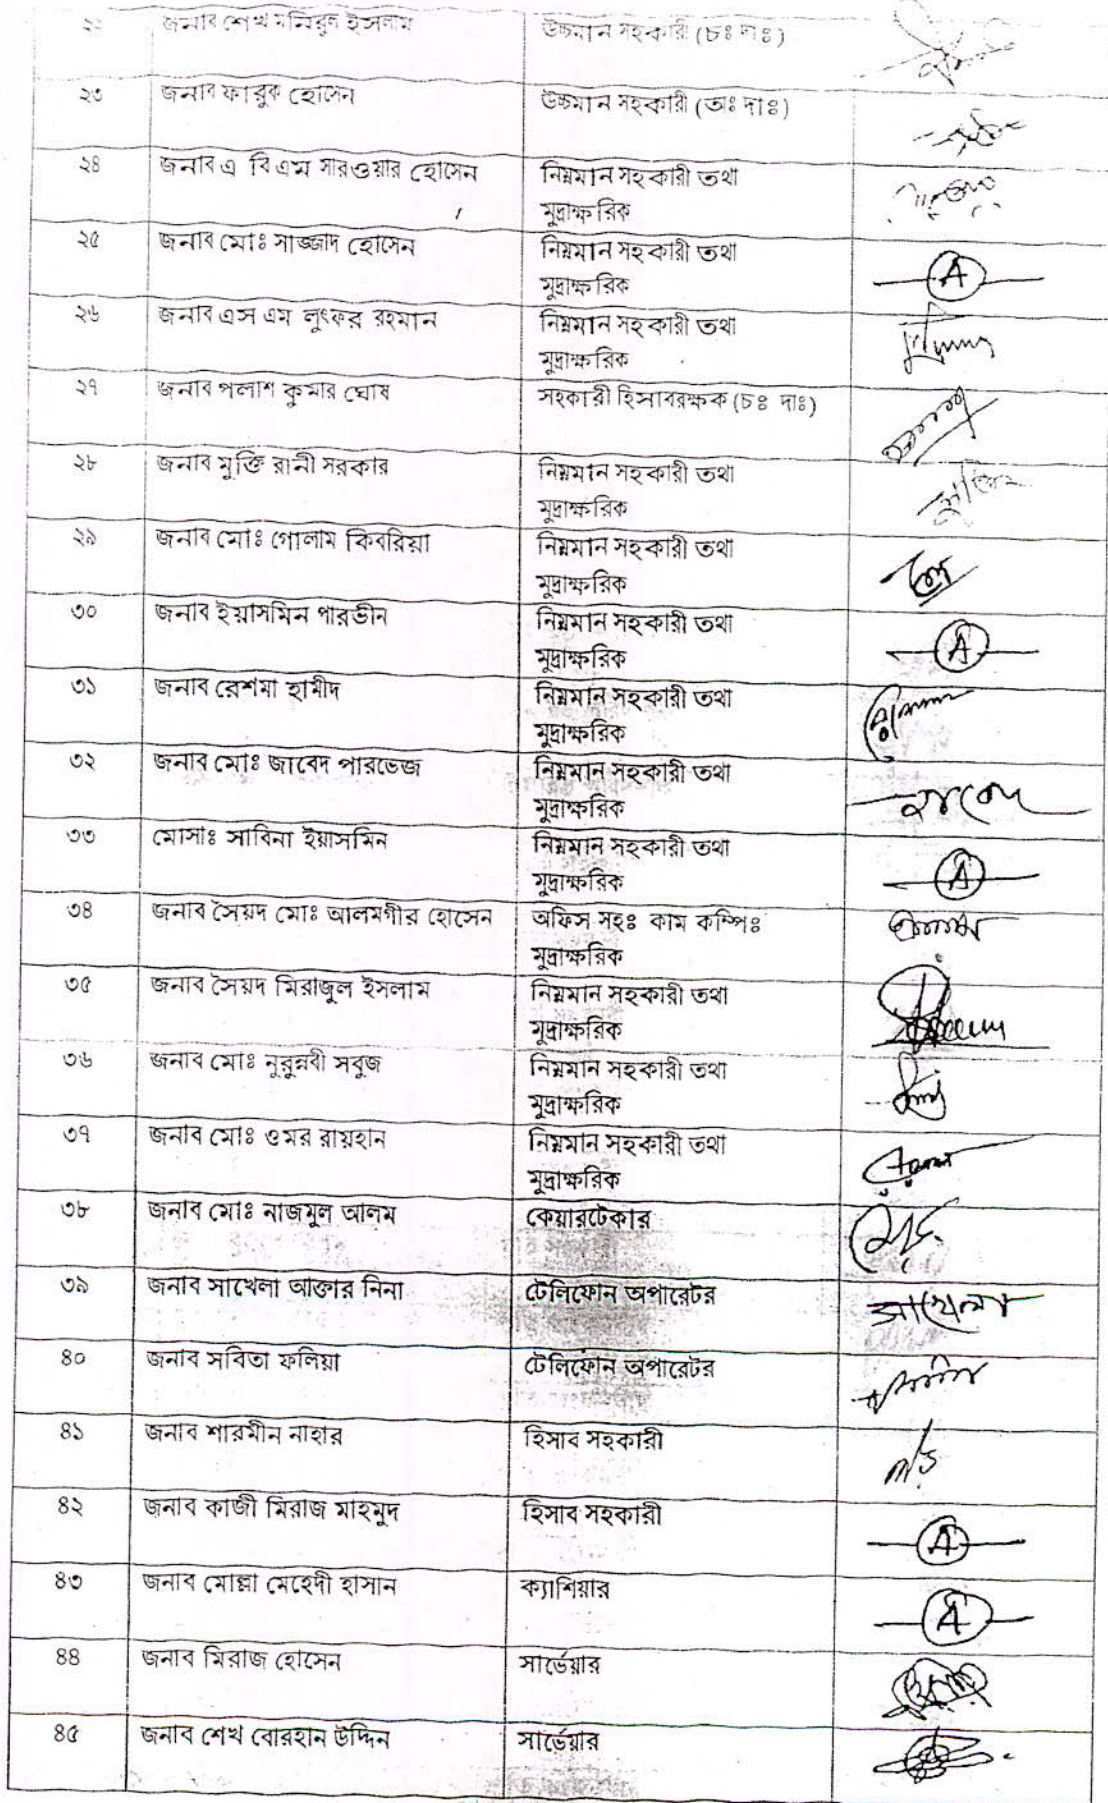 ২২ জনাব শেখ মনিরুল ইসলাম উচ্চমান সহকারী (চঃ দাঃ)
২৩ জনাব ফারুক হোসেন উচ্চমান সহকারী (অঃ দাঃ)
২৪ জনাব এ বি এম সারওয়ার হোসেন নিম্নমান সহকারী তথা
মুদ্রাক্ষরিক
২৫ জনাব মোঃ সাজ্জাদ হোসেন নিম্নমান সহকারী তথা
মুদ্রাক্ষরিক A
২৬ জনাব এস এম লুৎফর রহমান নিম্নমান সহকারী তথা
মুদ্রাক্ষরিক
২৭ জনাব পলাশ কুমার ঘোষ সহকারী হিসাবরক্ষক (চঃ দাঃ)
২৮ জনাব মুক্তি রানী সরকার নিম্নমান সহকারী তথা
মুদ্রাক্ষরিক
২৯ জনাব মোঃ গোলাম কিবরিয়া নিম্নমান সহকারী তথা
মুদ্রাক্ষরিক
৩০ জনাব ইয়াসমিন পারভীন নিম্নমান সহকারী তথা
মুদ্রাক্ষরিক A
৩১ জনাব রেশমা হামীদ নিম্নমান সহকারী তথা
মুদ্রাক্ষরিক
৩২ জনাব মোঃ জাবেদ পারভেজ নিম্নমান সহকারী তথা
মুদ্রাক্ষরিক জাবেদ
৩৩ মোসাঃ সাবিনা ইয়াসমিন নিম্নমান সহকারী তথা
মুদ্রাক্ষরিক A
৩৪ জনাব সৈয়দ মোঃ আলমগীর হোসেন অফিস সহঃ কাম কম্পিঃ
মুদ্রাক্ষরিক
৩৫ জনাব সৈয়দ মিরাজুল ইসলাম নিম্নমান সহকারী তথা
মুদ্রাক্ষরিক
৩৬ জনাব মোঃ নুরুন্নবী সবুজ নিম্নমান সহকারী তথা
মুদ্রাক্ষরিক
৩৭ জনাব মোঃ ওমর রায়হান নিম্নমান সহকারী তথা
মুদ্রাক্ষরিক
৩৮ জনাব মোঃ নাজমুল আলম কেয়ারটেকার
৩৯ জনাব সাখেলা আক্তার নিনা টেলিফোন অপারেটর সাখেলা
৪০ জনাব সবিতা ফলিয়া টেলিফোন অপারেটর
৪১ জনাব শারমীন নাহার হিসাব সহকারী
৪২ জনাব কাজী মিরাজ মাহমুদ হিসাব সহকারী A
৪৩ জনাব মোল্লা মেহেদী হাসান ক্যাশিয়ার A
৪৪ জনাব মিরাজ হোসেন সার্ভেয়ার
৪৫ জনাব শেখ বোরহান উদ্দিন সার্ভেয়ার